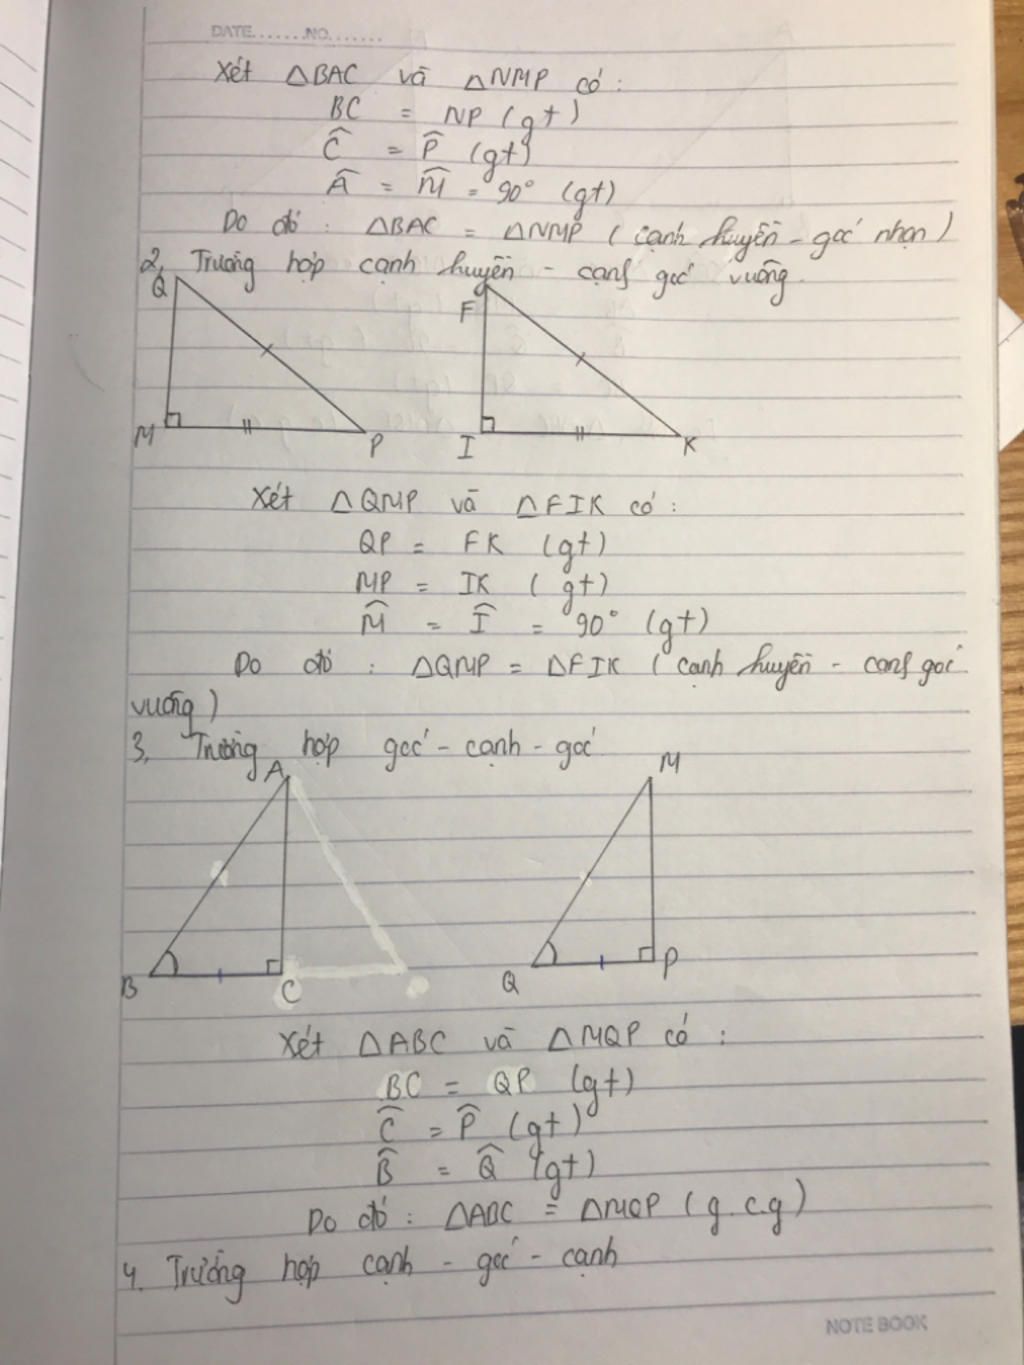 DATE.......NO.......
Xét △BAC và △NMP có :
BC = NP (gt)
Ĉ = P̂ (gt)
Â = M̂ = 90° (gt)
Do đó : △BAC = △NMP ( cạnh huyền - góc nhọn )
2, Trường hợp cạnh huyền - cạnh góc vuông.
Q F
M P I K
Xét △QMP và △FIK có :
QP = FK (gt)
MP = IK ( gt)
M̂ = Î = 90° (gt)
Do đó : △QMP = △FIK ( cạnh huyền - cạnh góc
vuông )
3, Trường hợp góc - cạnh - góc
A M
B C Q P
Xét △ABC và △MQP có :
BC = QP (gt)
Ĉ = P̂ (gt)
B̂ = Q̂ (gt)
Do đó : △ABC = △MQP ( g.c.g )
4. Trường hợp cạnh - góc - cạnh
NOTE BOOK